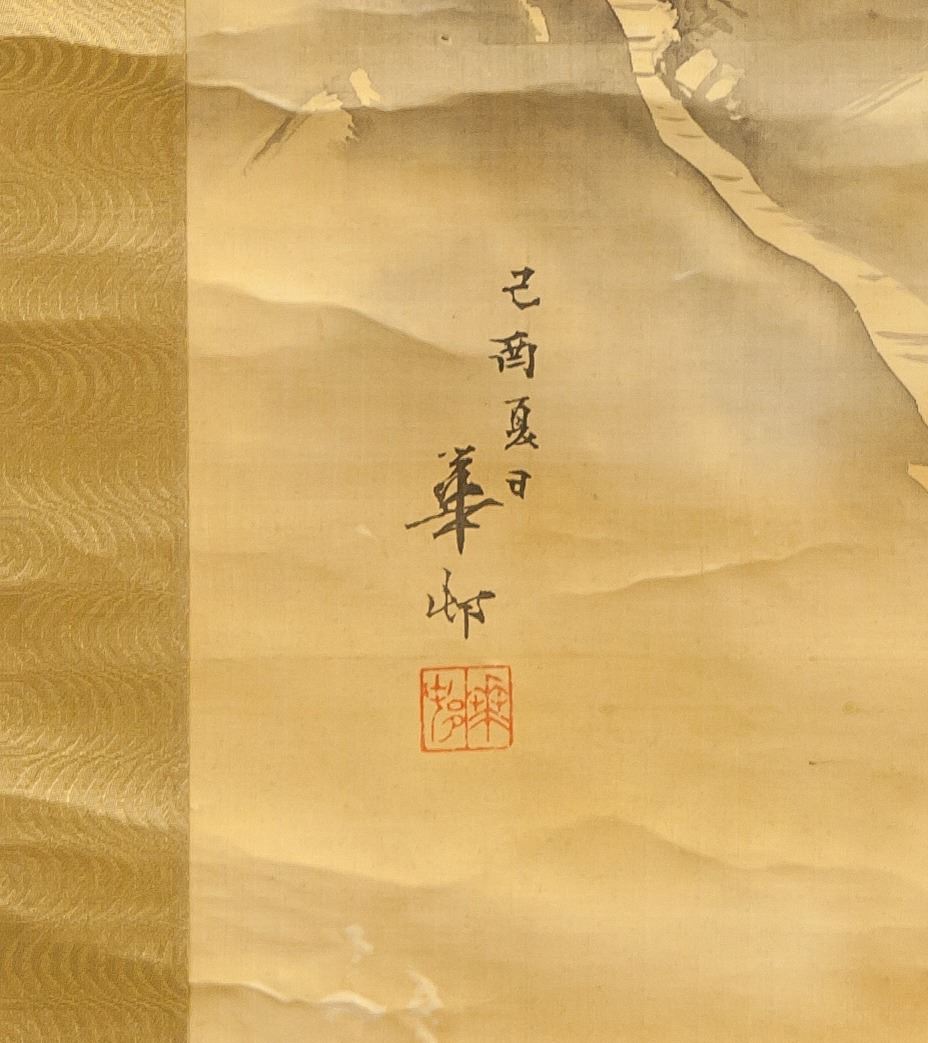 己酉夏日
華邨
華邨